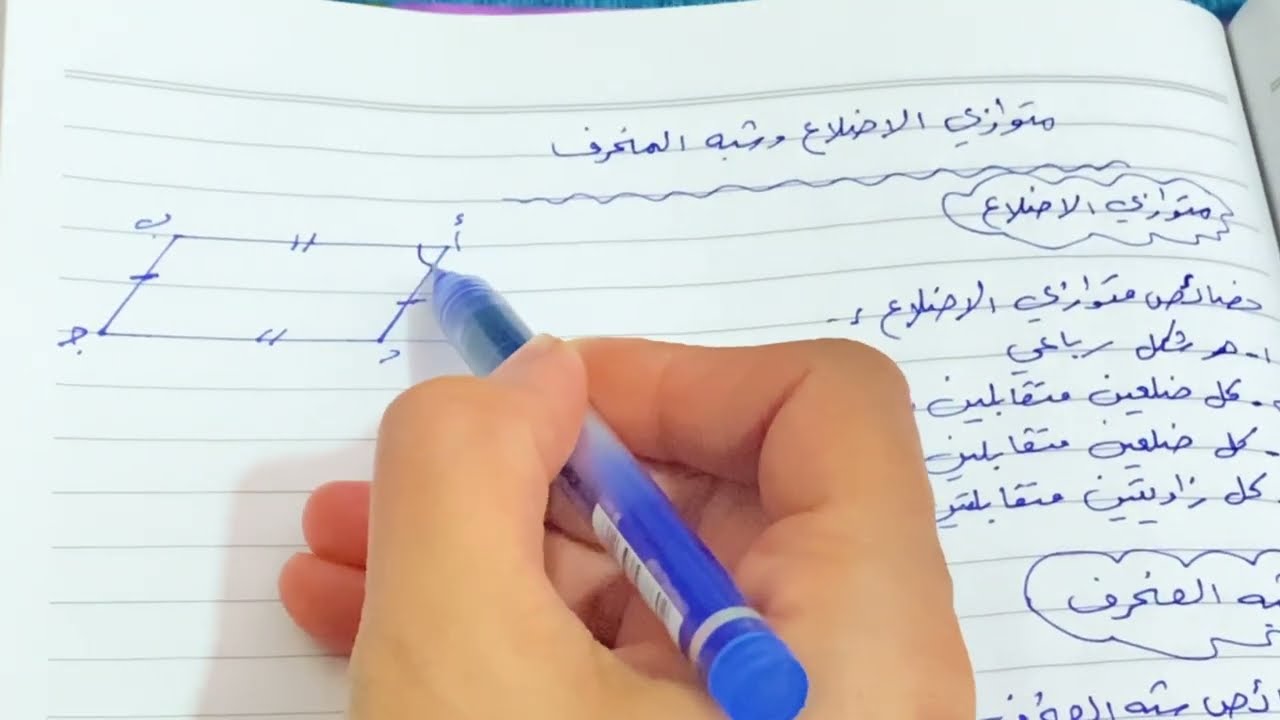 متوازي الاضلاع وشبه المنحرف
متوازي الاضلاع
خصائص متوازي الاضلاع :-
١- هو شكل رباعي
كل ضلعين متقابلين
كل ضلعين متقابلين
كل زاويتين متقابلتين
المنحرف
شبه المنحرف
أ
ب
جـ
د